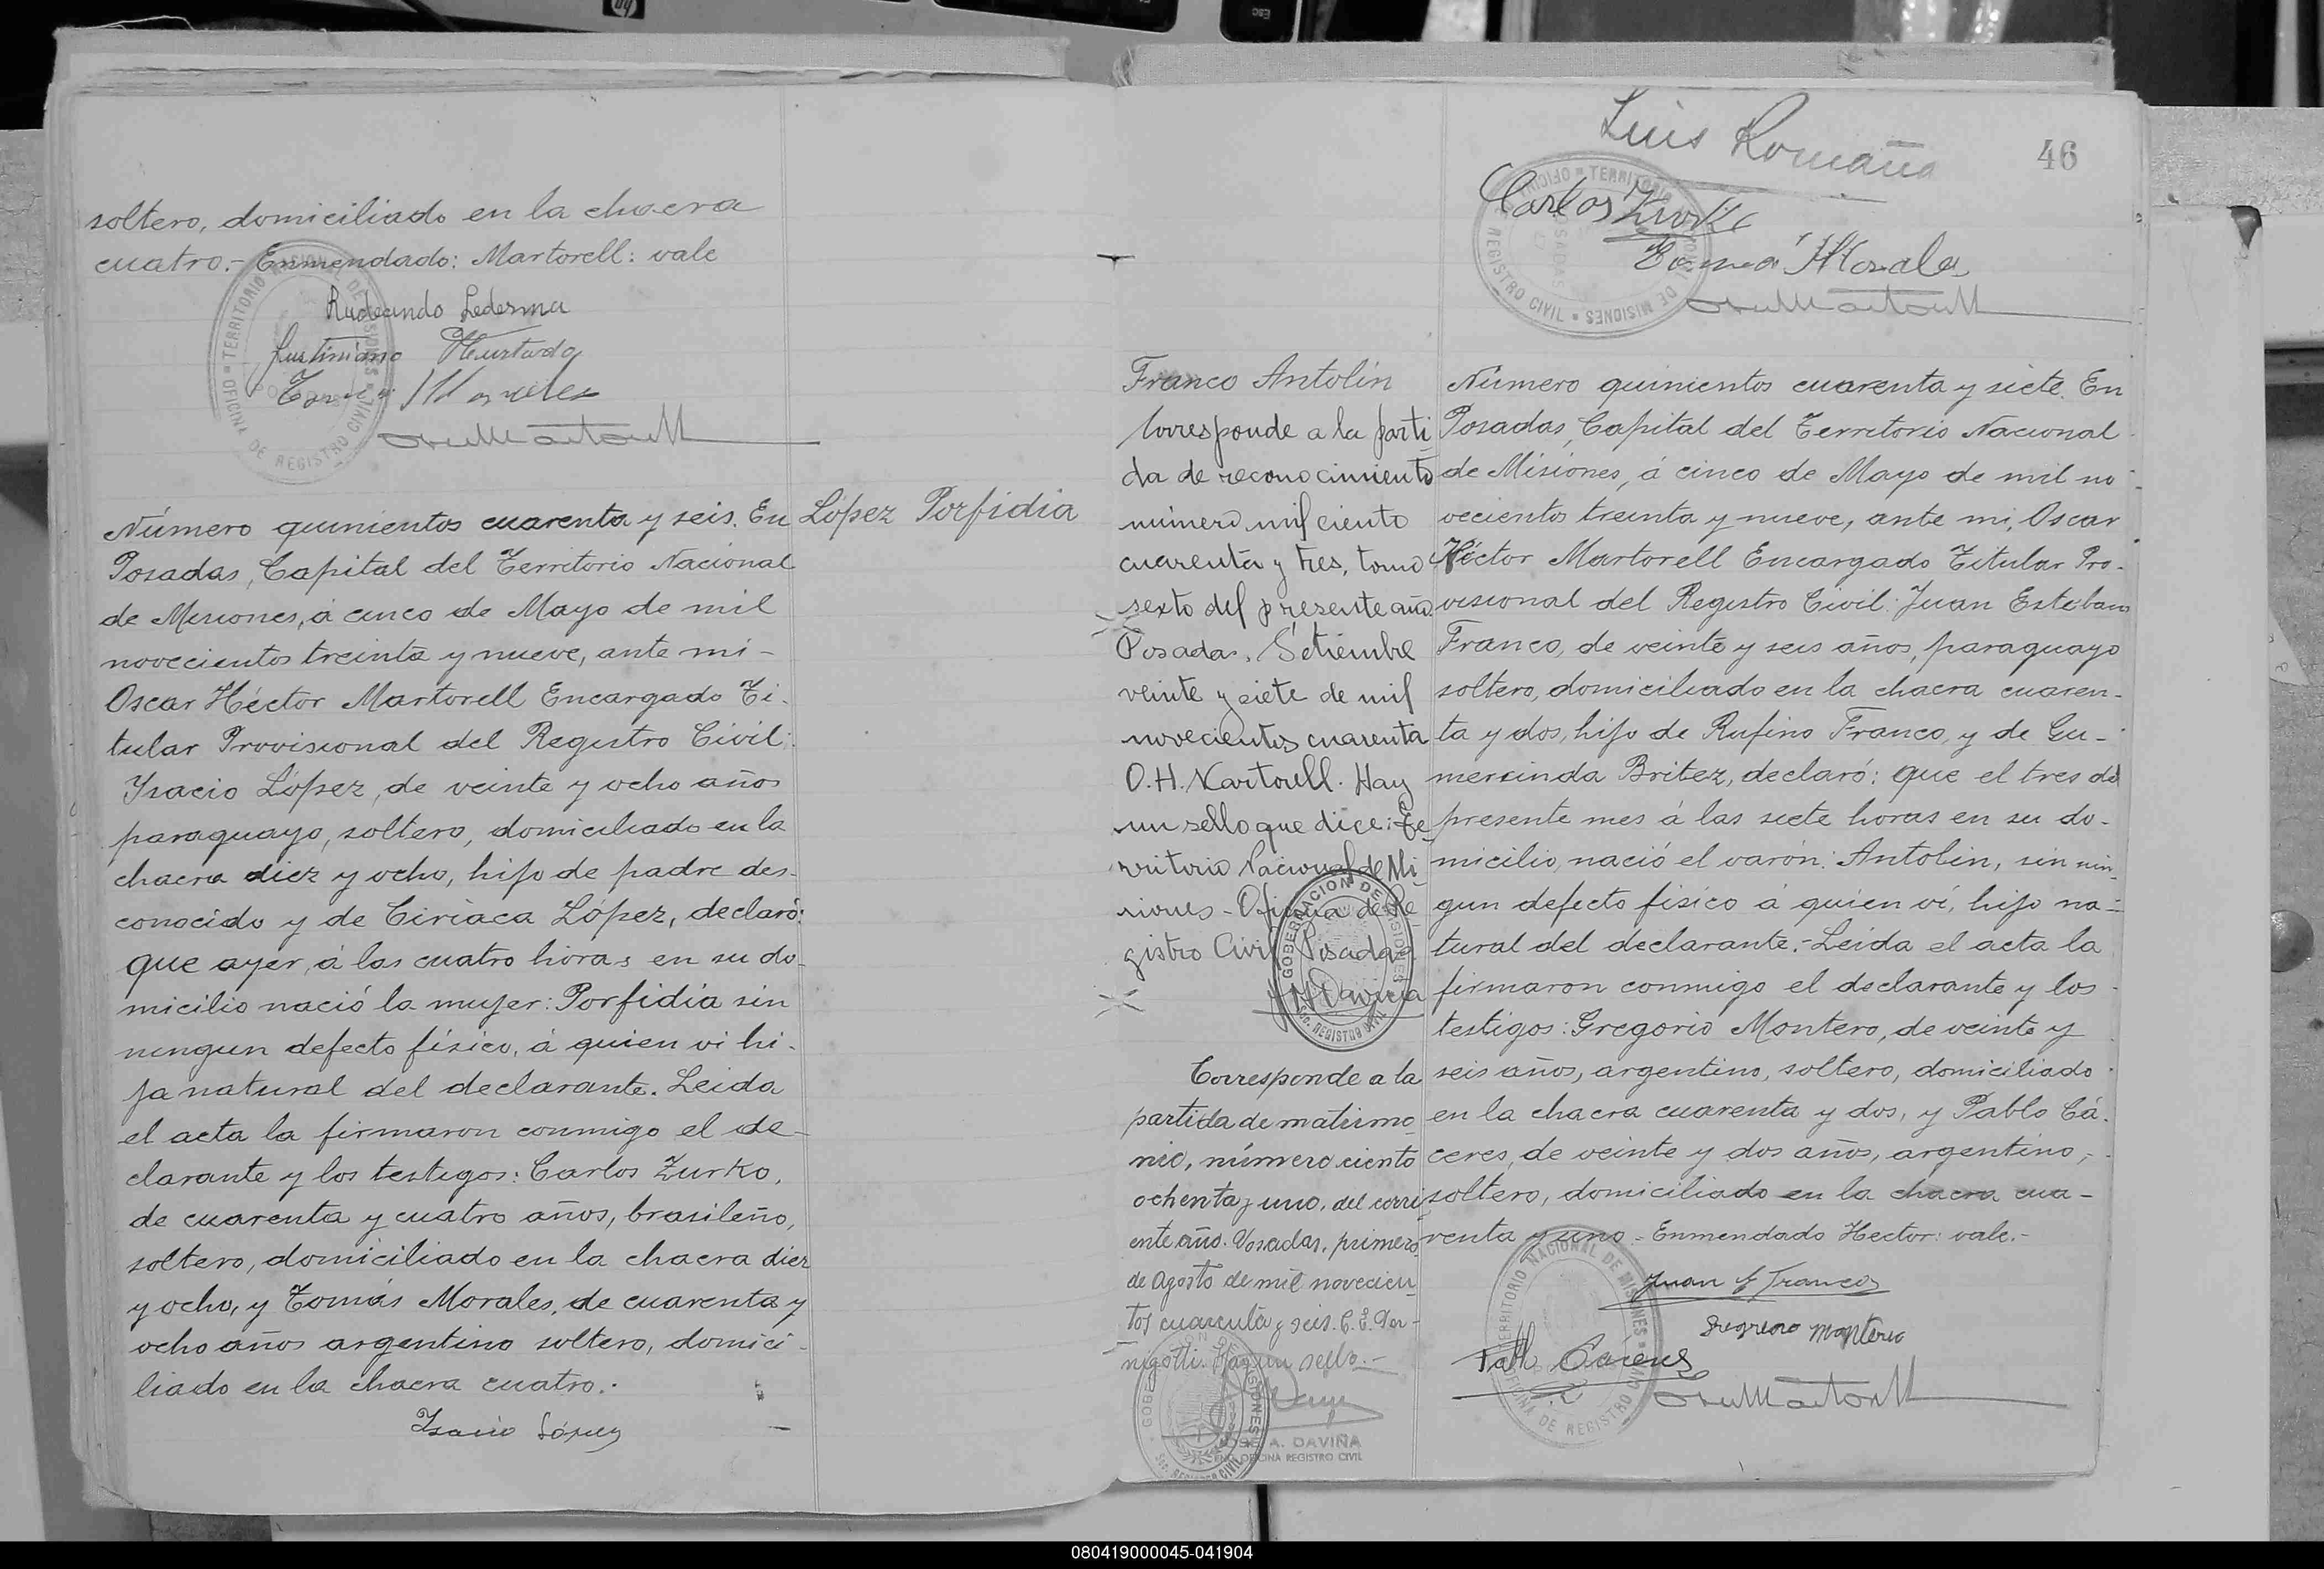 soltero, domiciliado en la chacra
cuatro.- Enmendado: Martorell: vale
Rudecindo Ledesma
Justiniano Hurtado
Tomás Morales
López Porfidia
Número quinientos cuarenta y seis. En
Posadas, Capital del Territorio Nacional
de Misiones, á cinco de Mayo de mil
novecientos treinta y nueve, ante mi-
Oscar Héctor Martorell Encargado Ti-
tular Provisional del Registro Civil:
Ysacio López, de veinte y ocho años
paraguayo, soltero, domiciliado en la
chacra diez y ocho, hijo de padre des-
conocido y de Ciriaca López, declaró:
que ayer, á las cuatro horas en su do-
micilio nació la mujer: Porfidia sin
ningun defecto físico, á quien vi hi-
ja natural del declarante. Leida
el acta la firmaron conmigo el de-
clarante y los testigos: Carlos Zurko,
de cuarenta y cuatro años, brasileño,
soltero, domiciliado en la chacra diez
y ocho, y Tomás Morales, de cuarenta y
ocho años argentino soltero, domici-
liado en la chacra cuatro.-
Isacio López
46
Luis Romaña
Carlos Zurko
Tomás Morales
Franco Antolín
Corresponde a la parti
da de reconocimiento
número mil ciento
cuarenta y tres, tomo
sexto del presente año.
Posadas, Setiembre
veinte y siete de mil
novecientos cuarenta
O.H. Martorell. Hay
un sello que dice: Te-
rritorio Nacional de Mi-
siones - Oficina de Re
gistro Civil Posadas.
Corresponde a la
partida de matrimo
nio, número ciento
ochenta y uno, del corri
ente año. Posadas, primero
de Agosto de mil novecien
tos cuarenta y seis. C. E. Der-
nigotti. Hay un sello.-
JOSE A. DAVIÑA
OFICINA REGISTRO CIVIL
Número quinientos cuarenta y siete. En
Posadas, Capital del Territorio Nacional
de Misiones, á cinco de Mayo de mil no-
vecientos treinta y nueve, ante mi, Oscar
Héctor Martorell Encargado Titular Pro-
visional del Registro Civil: Juan Esteban
Franco, de veinte y seis años, paraguayo
soltero, domiciliado en la chacra cuaren-
ta y dos, hijo de Rufino Franco, y de Gu-
mersinda Britez, declaró: que el tres del
presente mes á las siete horas en su do-
micilio, nació el varón: Antolin, sin nin-
gun defecto físico á quien ví, hijo na-
tural del declarante.- Leida el acta la
firmaron conmigo el declarante y los
testigos: Gregorio Montero, de veinte y
seis años, argentino, soltero, domiciliado
en la chacra cuarenta y dos, y Pablo Cá-
ceres, de veinte y dos años, argentino,
soltero, domiciliado en la chacra cua-
renta y uno.- Enmendado Hector: vale.-
Juan E Franco
Gregorio Montero
Pablo Cáceres
TERRITORIO NACIONAL DE MISIONES
OFICINA DE REGISTRO CIVIL
080419000045-041904